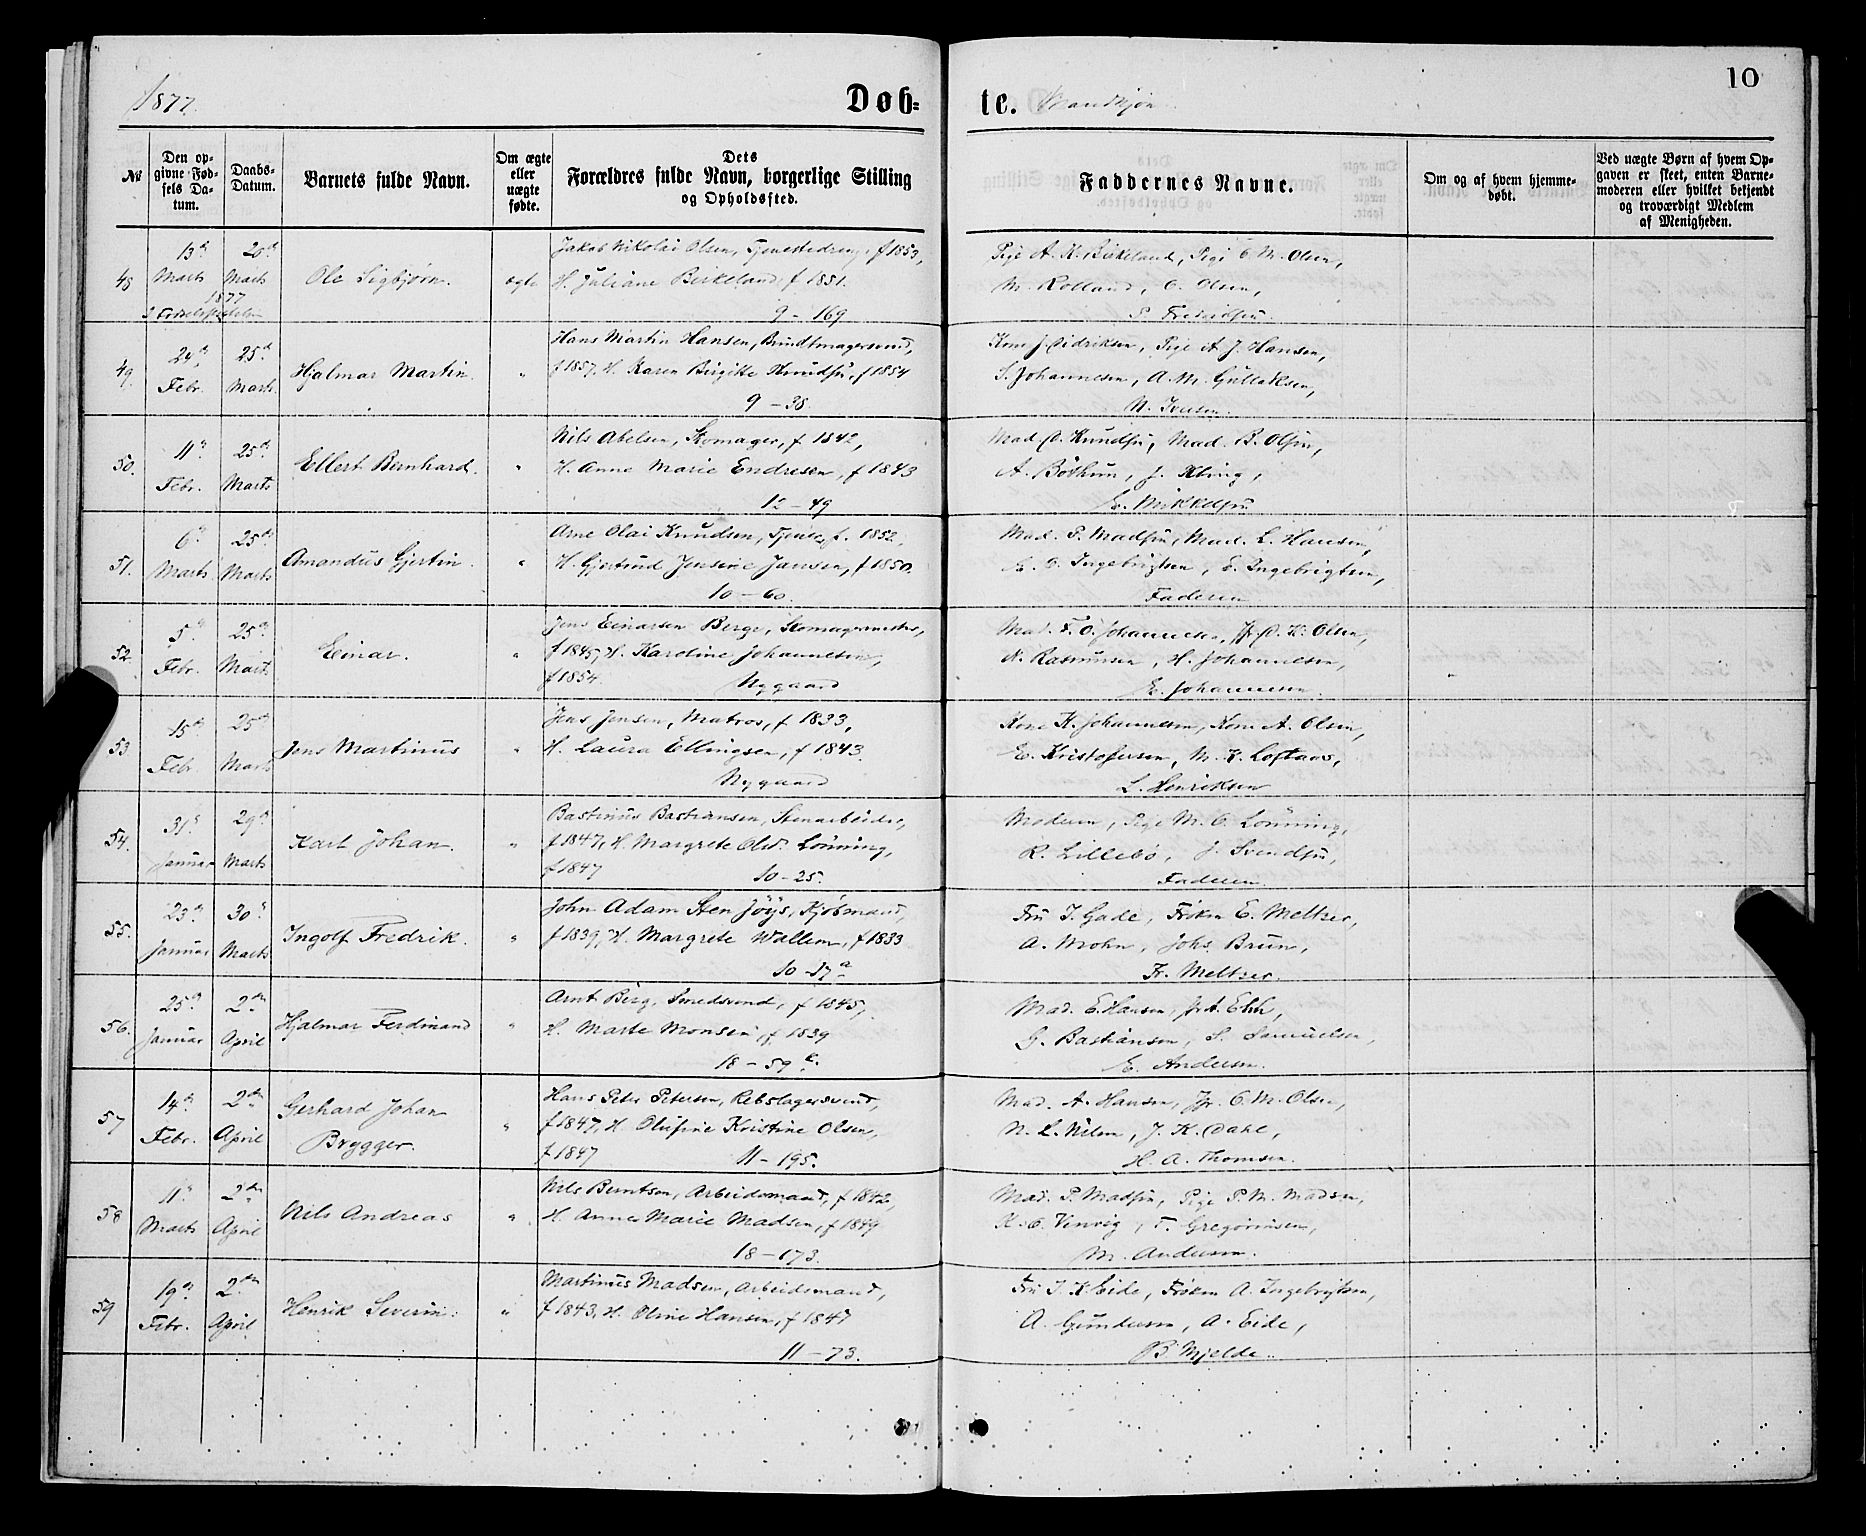 1877.
Døb-
te. Mandkjøn
10
№
Den op-
givne Fød-
sels Da-
tum.
Daabs-
Datum.
Barnets fulde Navn.
Om ægte
eller
uægte
fødte.
Dets
Forældres fulde Navn, borgerlige Stilling
og Opholdssted.
Faddernes Navne.
Om og af hvem hjemme-
døbt.
Ved uægte Børn af hvem Op-
gaven er skeet, enten Barne-
moderen eller hvilket bekjendt
og troværdigt Medlem
af Menigheden.
48
13de
Marts
1877
20de
Marts
Ole Sigbjørn.
ægte
Jakob Nikolai Olsen, Tjenestedreng, f 1853,
H. Juliane Birkeland, f 1851.
9 - 169
Pige A. K. Birkeland, Pige O. M. Olsen,
M. Rolland, O. Olsen,
49
24de
Febr.
25de
Marts
Hjalmar Martin.
"
Hans Martin Hansen, Bundtmagersvend,
f 1857, H. Karen Birgitte Knudsen, f 1854
9 - 38.
Kone J. Didriksen, Pige A. J. Hansen,
S. Johannesen, A. M. Gullaksen,
N. Iversen.
50.
11te
Febr.
25de
Marts
Ellert Bernhard.
"
Nils Abelsen, Skomager, f 1842,
H. Anne Marie Endresen, f 1843
12 - 49
Mad. D. Knudsen, Mad. B. Olsen,
A. Böthun, J. Kling,
E. Mikkelsen
51.
6te
Marts
25de
Marts
Amandus Gjertin.
"
Arne Olai Knudsen, Tjener, f. 1852,
H. Gjertrud Jensine Jansen, f 1850.
10 - 60.
Mad. P. Madsen, Mad. L. Hansen,
E. O. Ingebrigtsen, E. Ingebrigtsen,
Faderen
52.
5te
Febr.
25de
Marts
Einar.
"
Jens Einarsen Berge, Skomagermester,
f 1845, H. Karoline Johannesen,
f 1854. Nygaard
Mad. F. O. Johannesen, Jfr. D. K. Olsen,
N. Rasmussen, H. Johannesen,
E. Johannesen.
53
15de
Febr.
25de
Marts
Jens Martinus
"
Jens Jensen, Matros, f 1833,
H. Laura Ellingsen, f 1843.
Nygaard
Kone K. Johannesen, Kone A. Olsen,
E. Kristofersen, M. K. Loftaas,
L. Henriksen
54.
31te
Januar
29de
Marts
Karl Johan.
"
Bastinus Bastiansen, Stenarbeider,
f 1847, H. Margrete Olsd. Lönning,
f 1847 10 - 25.
Moderen, Pige M. O. Lönning,
R. Lillebö, J. Svendsen,
Faderen.
55.
23de
Januar
30te
Marts
Ingolf Fredrik.
"
John Adam Sten Jöys, Kjöbmand,
f 1839, H. Margrete Wallem, f 1833
10 - 17 a
Fru I. Gade, Fröken E. Meltzer,
A. Mohn, Johs. Brun,
Fr. Meltzer.
56.
25de
Januar
2den
April
Hjalmar Ferdinand
"
Arnt Berg, Smedsvend, f 1845,
H. Marte Monsen, f 1839
18 - 59
Mad. E. Hansen,
G. Bastiansen, S. Samuelsen,
E. Andersen.
57
14de
Febr.
2den
April
Gerhard Johan
Brygger.
"
Hans Peter Petersen, Rebslagersvend,
f 1847, H. Olufine Kristine Olsen,
f 1847 11 - 195.
Mad. A. Hansen, Jfr. O. M. Olsen,
N. L. Nilsen, J. K. Dahl,
H. A. Thomsen.
58
11te
Marts
2den
April
Nils Andreas
"
Nils Berntsen, Arbeidsmand, f 1842,
H. Anne Marie Madsen, f 1849
18 - 173.
Mad. P. Madsen, Pige P. M. Madsen,
K. O. Vinvig, T. Gregoriusen,
M. Andersen.
59
19de
Febr.
2den
April
Henrik Severin.
"
Martinus Madsen, Arbeidsmand,
f 1843, H. Oline Hansen, f 1847
11 - 73.
Fru I. K. Eide, Fröken A. Ingebrigtsen,
A. Gundersen, A. Eide,
B. Mjelde.